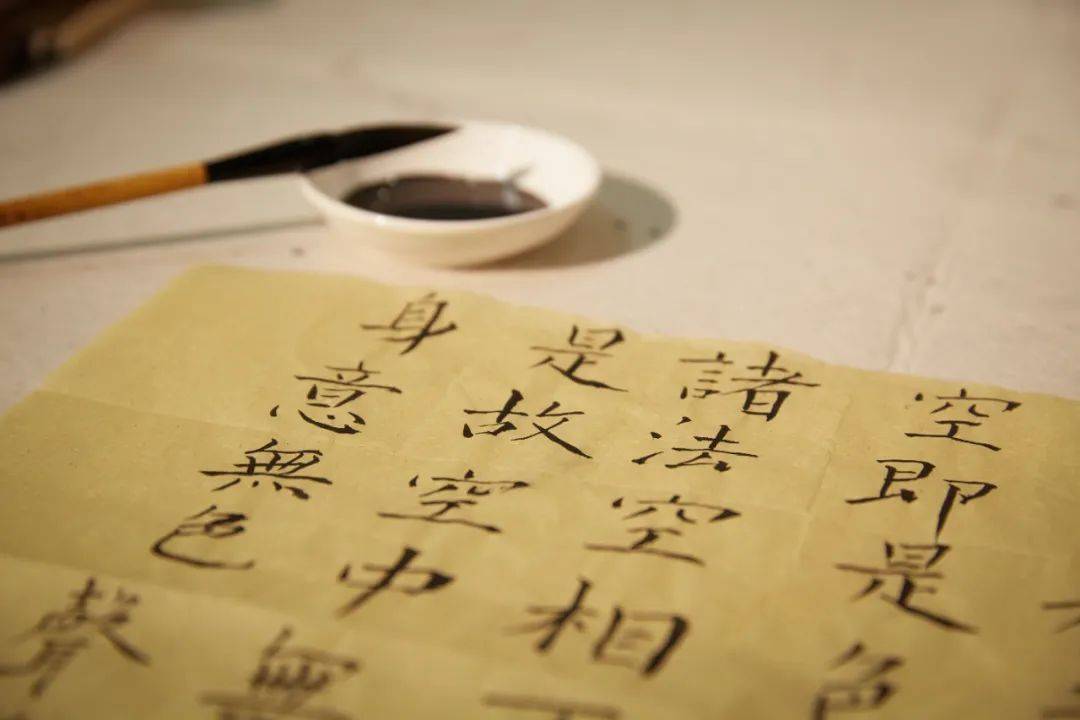 空即是色
諸法空相
是故空中無
身意無色聲